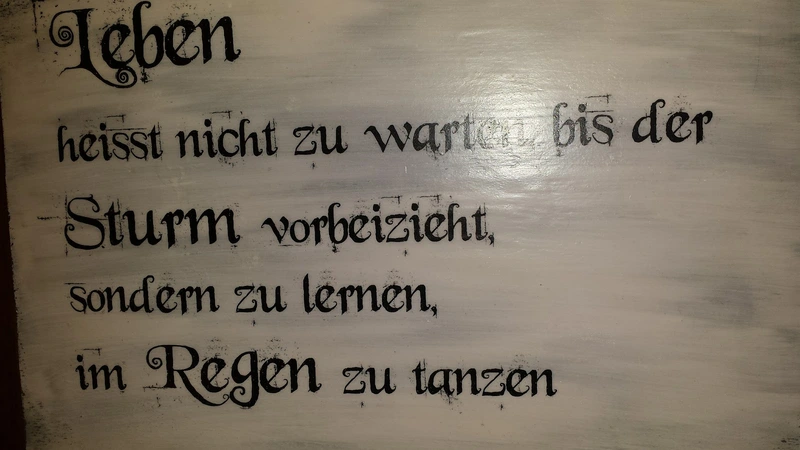 Leben
heisst nicht zu warten bis der
Sturm vorbeizieht,
sondern zu lernen,
im Regen zu tanzen